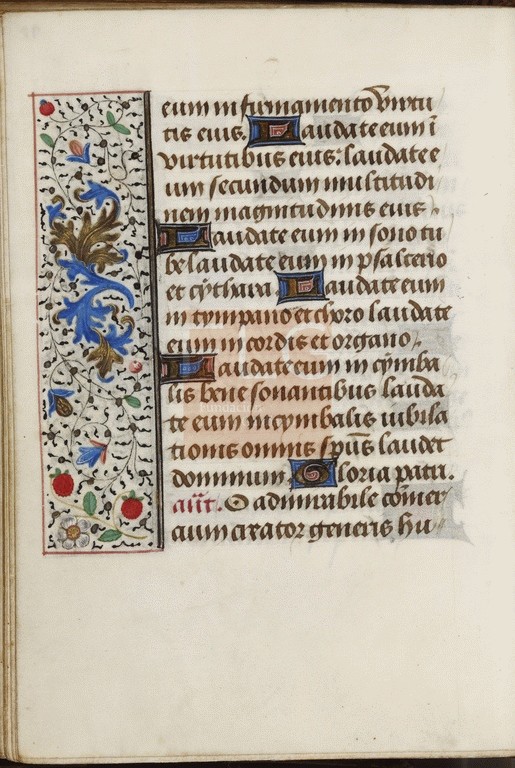 eum in firmamento virtu
tis eius. Laudate eum ĩ
virtutibus eius: laudate e
um secundum multitudi
nem magnitudinis eius.
Laudate eum in sono tu
be laudate eum in psalterio
et cythara. Laudate eum
in tympano et choro laudate
eum in cordis et organo.
Laudate eum in cymba
lis bene sonantibus lauda
te eum in cymbalis iubila
tionis omnis sp̃us laudet
dominum. Gloria patri.
añt. O admirabile cõmer
cium creator generis hu
FLG
Fundación